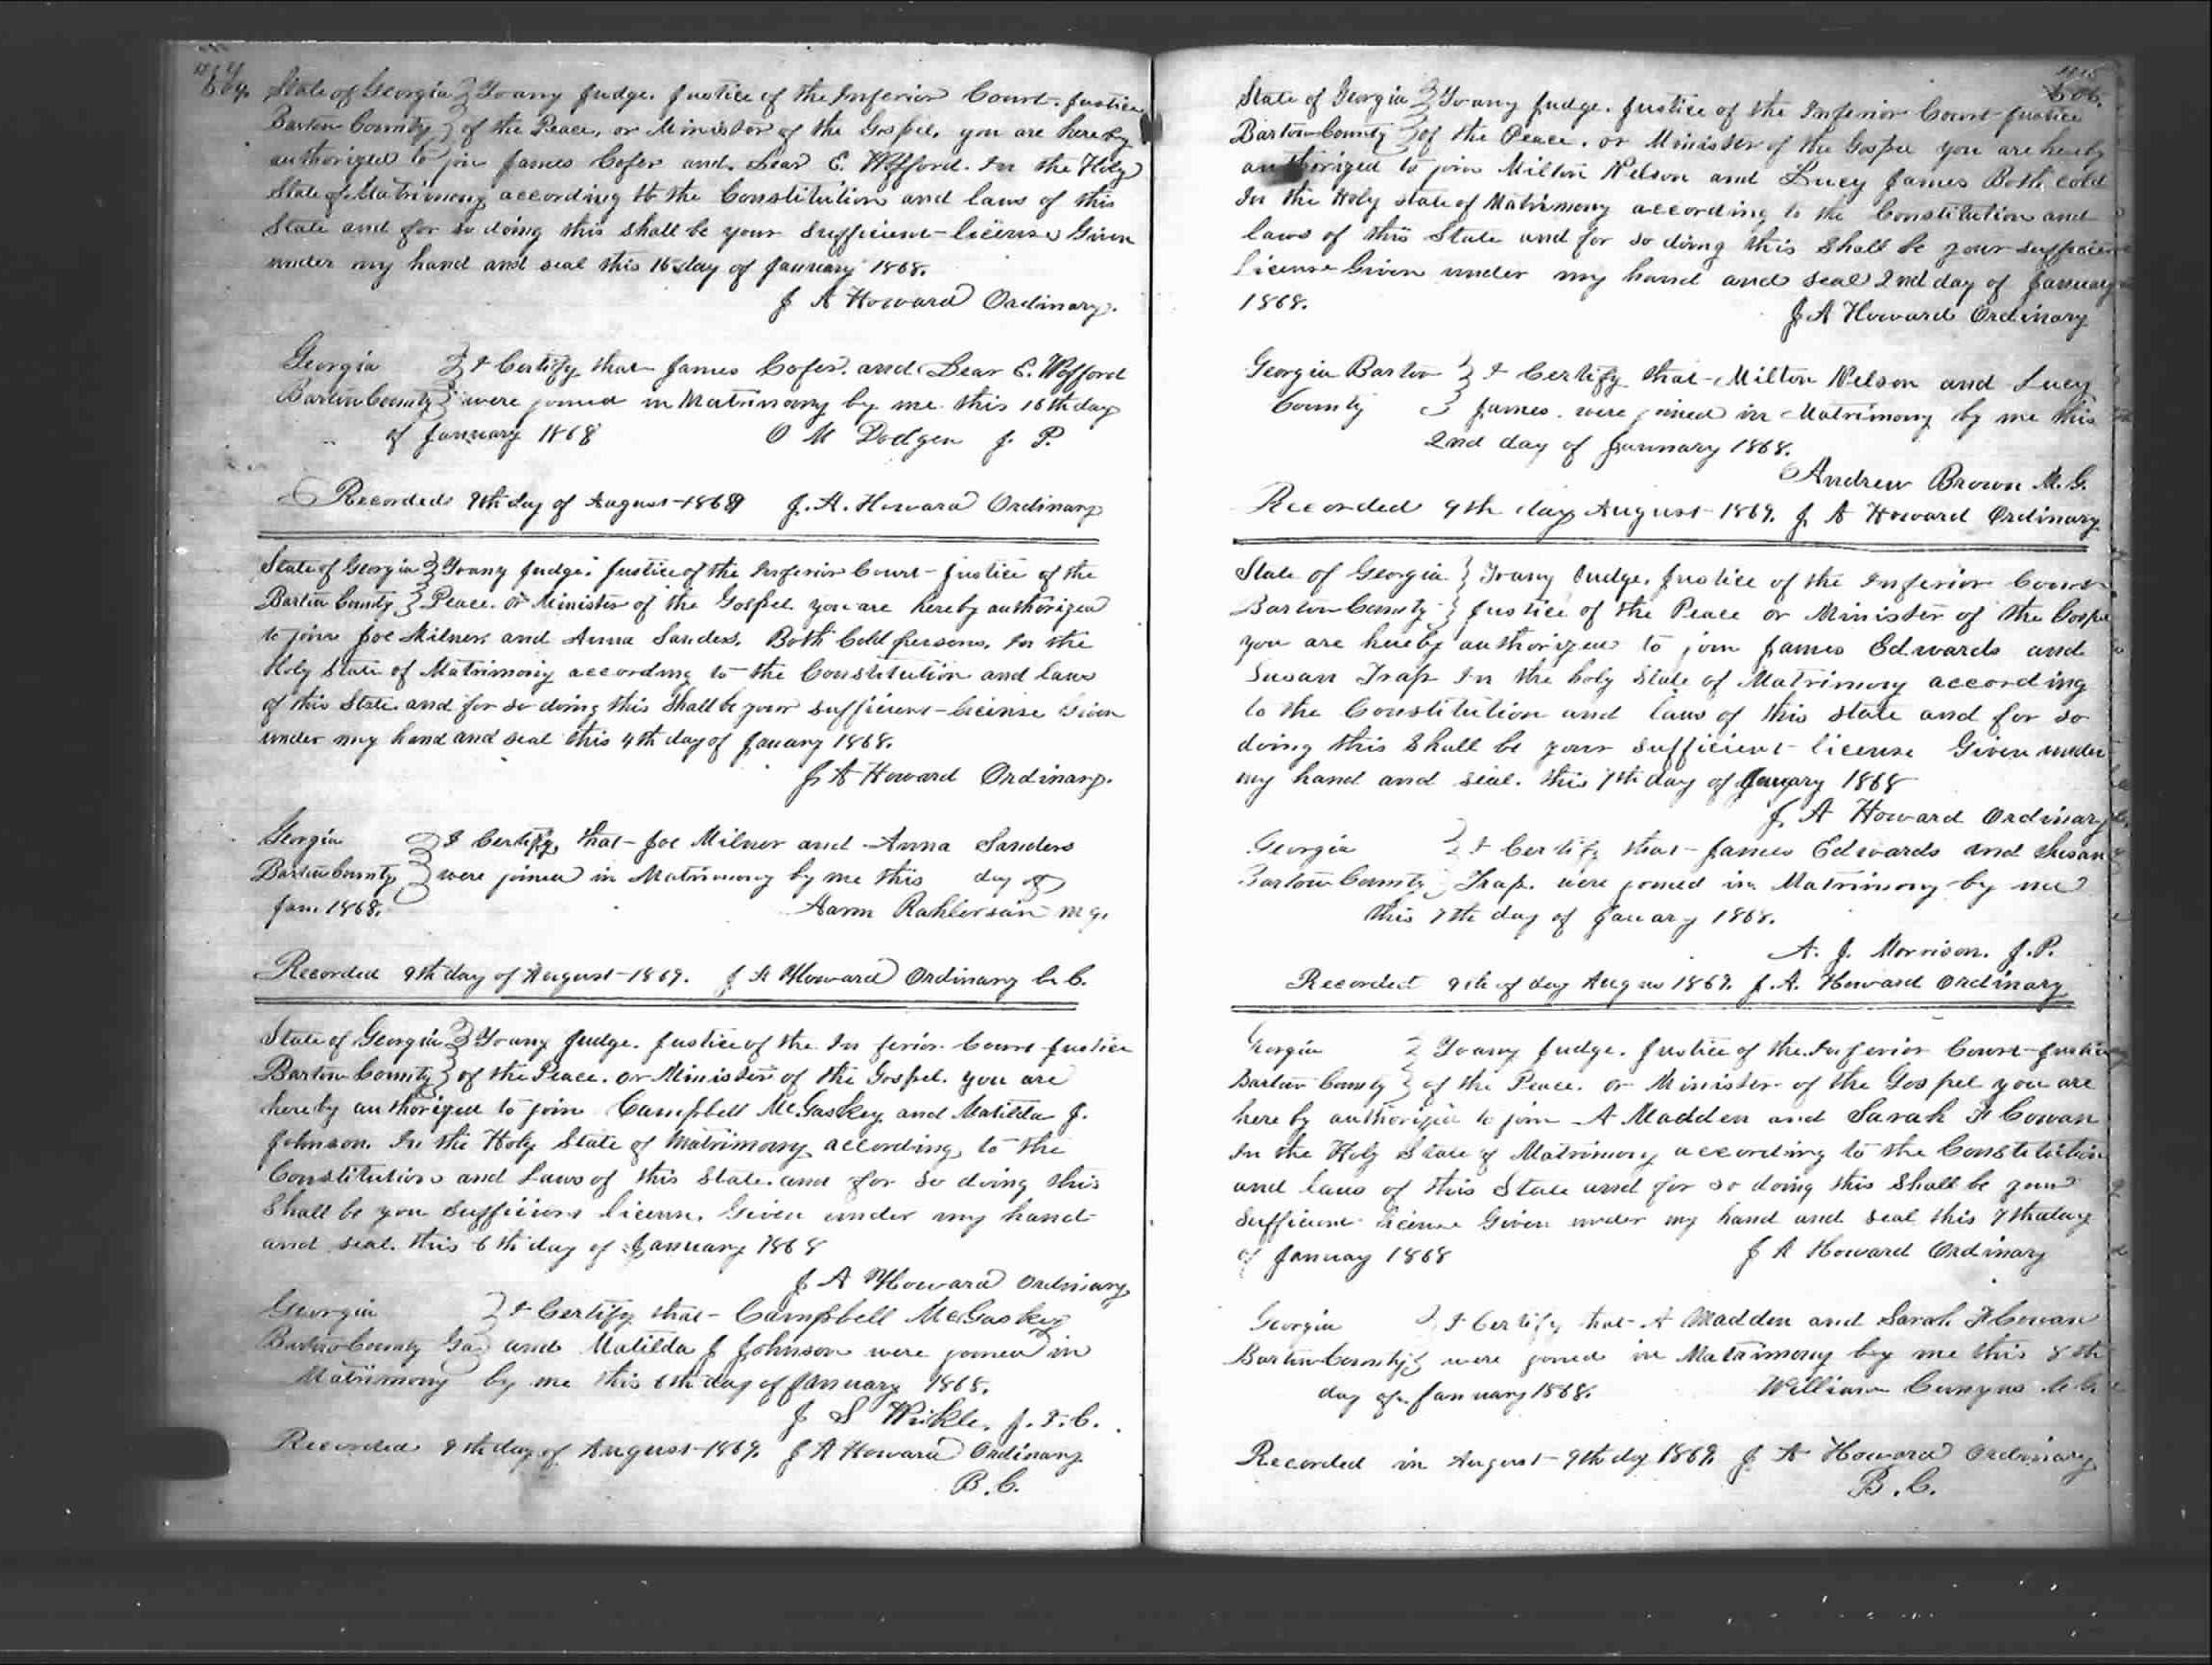 State of Georgia } To any Judge. Justice of the Inferior Court. Justice
Bartow County } of the Peace, or Minister of the Gospel, you are hereby
authorized to join James Cofer and. Lear E. Wofford. In the Holy
State of Matrimony according to the Constitution and laws of this
State and for so doing this shall be your Sufficient license Given
under my hand and seal this 16 day of January 1868.
J A Howard Ordinary.
Georgia } I Certify that James Cofer. and Lear E. Wofford
Bartow County } were joined in Matrimony by me this 16th day
of January 1868 O M Dodgen J. P.
Recorded 9th day of August 1869 J. A. Howard Ordinary
State of Georgia } To any Judge. Justice of the Inferior Court Justice of the
Bartow County } Peace. or Minister of the Gospel you are hereby authorized
to join Joe Milner and Anna Sanders. Both Cold persons. In the
Holy State of Matrimony according to the Constitution and laws
of this State and for so doing this Shall be your sufficient license Given
under my hand and seal this 4th day of January 1868.
J A Howard Ordinary.
Georgia } I Certify, that Joe Milner and Anna Sanders
Bartow County } were joined in Matrimony by me this day of
Jan. 1868. M G.
Recorded 9th day of August 1869. J A Howard Ordinary B. C.
State of Georgia } To any Judge. Justice of the In ferior Court Justice
Bartow County } of the Peace. or Minister of the Gospel. you are
hereby authorized to join Campbell McGaskey and Matilda J.
Johnson. In the Holy State of Matrimony according to the
Constitution and Laws of this State. and for so doing this
Shall be you Sufficient license. Given under my hand
and seal. this 6th day of January 1868
J A Howard Ordinary
Georgia } I Certify that Campbell McGaskey
Bartow County Ga } and Matilda J Johnson were joined in
Matrimony by me this 6th day of January 1868.
J S J. I. C.
Recorded 9th day of August 1869. J A Howard Ordinary
B. C.
State of Georgia } To any Judge. Justice of the Inferior Court Justice
Bartow County } of the Peace. or Minister of the Gospel you are hereby
authorized to join Milton Nelson and Lucy James Both cold
In the Holy state of Matrimony according to the Constitution and
laws of this State and for so doing this Shall be your sufficient
License Given under my hand and seal 2nd day of January
1868.
J A Howard Ordinary
Georgia Bartow } I Certify that Milton Nelson and Lucy
County } James. were joined in Matrimony by me this
2nd day of January 1868.
Andrew Brown M. G.
Recorded 9th day August 1869. J A Howard Ordinary
State of Georgia } To any Judge. Justice of the Inferior Court
Bartow County } Justice of the Peace or Minister of the Gospel
you are hereby authorized to join James Edwards and
Susan Trap In the holy State of Matrimony according
to the Constitution and laws of this state and for so
doing this Shall be your sufficient license Given under
my hand and seal. this 7th day of January 1868
J A Howard Ordinary
Georgia } I Certify that James Edwards and Susan
Bartow County } Trap. were joined in Matrimony by me
this 7th day of January 1868.
A. J. Morrison. J. P.
Recorded 9th of day 1869. J. A. Howard Ordinary
Georgia } To any Judge. Justice of the Inferior Court Justice
Bartow County } of the Peace. or Minister of the Gospel you are
hereby authorized to join A Madden and Sarah F Cowan
In the Holy State of Matrimony according to the Constitution
and laws of this State and for so doing this Shall be your
Sufficient license Given under my hand and seal this 7th day
of January 1868 J A Howard Ordinary
Georgia } I Certify that A Madden and Sarah F Cowan
Bartow County } were joined in Matrimony by me this 8th
day of January 1868. William M. G.
Recorded in August 9th dy 1869. J A Howard Ordinary
B. C.